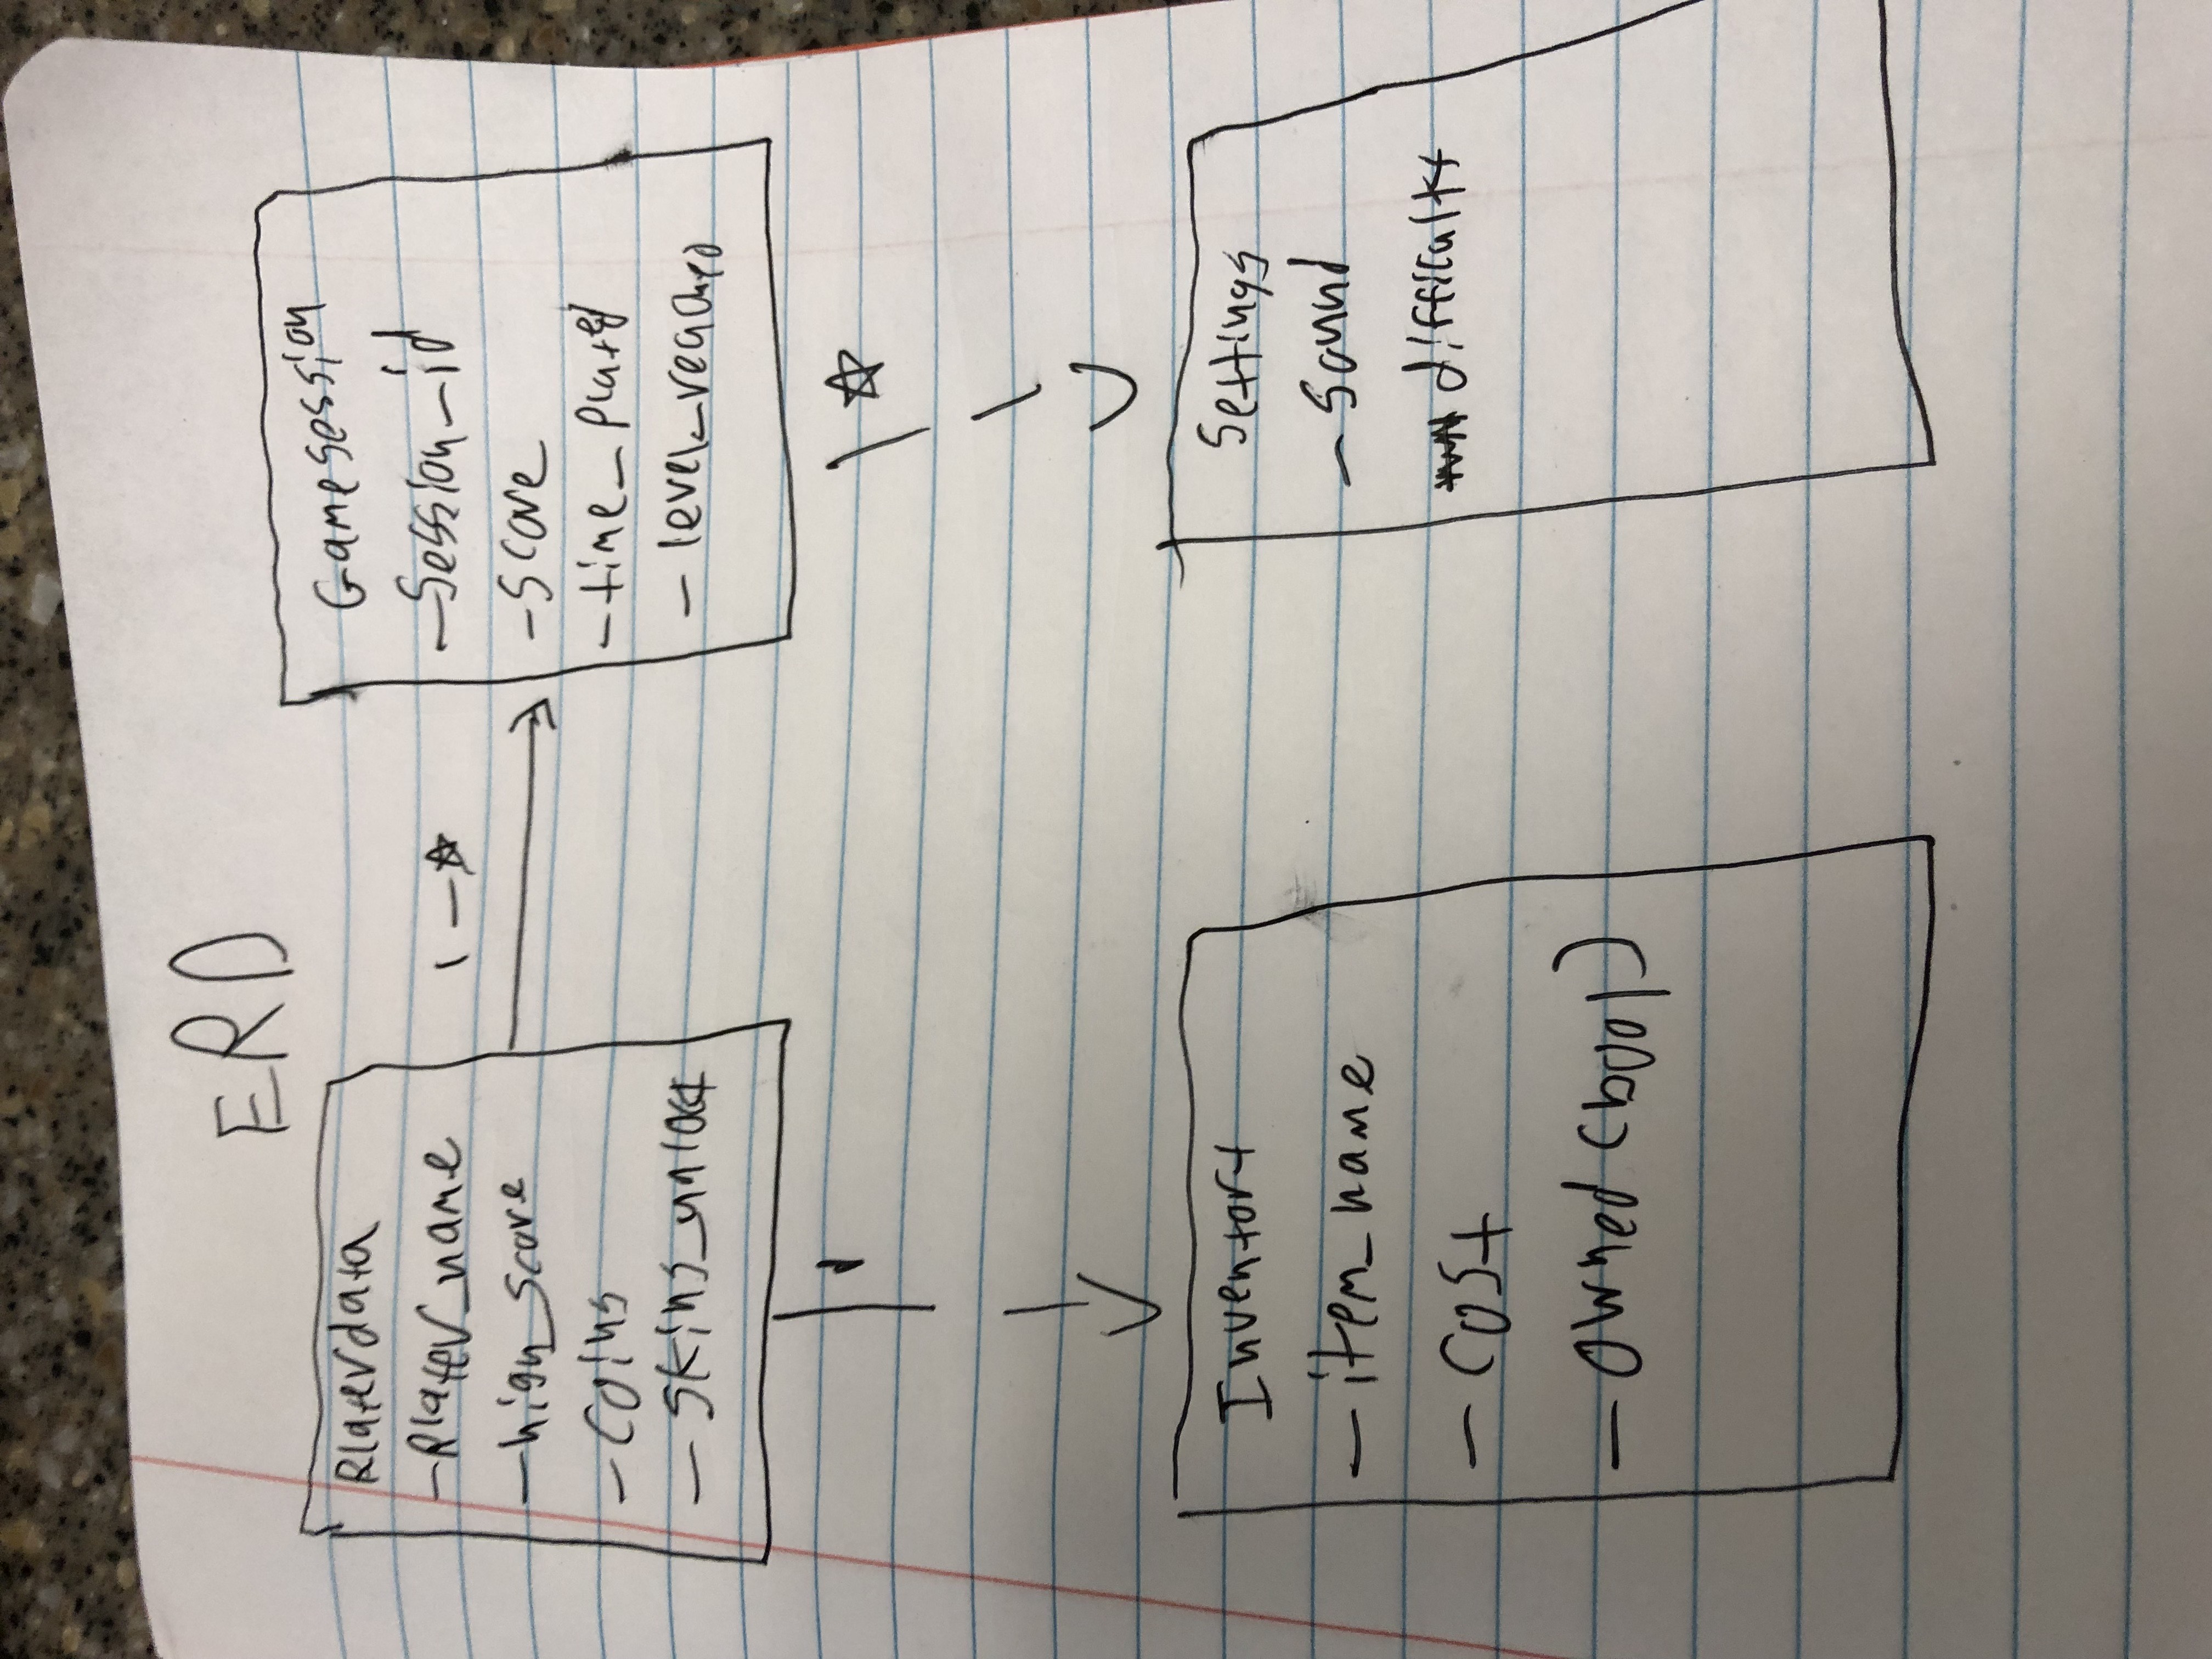 ERD
Playerdata
- Player_name
- high_score
- Coins
- Skins_unlock
1 - *
Gamesession
- Session_id
- Score
- time_played
- level_reached
1
*
Inventory
- item_name
- Cost
- Owned (bool)
Settings
- Sound
difficulty